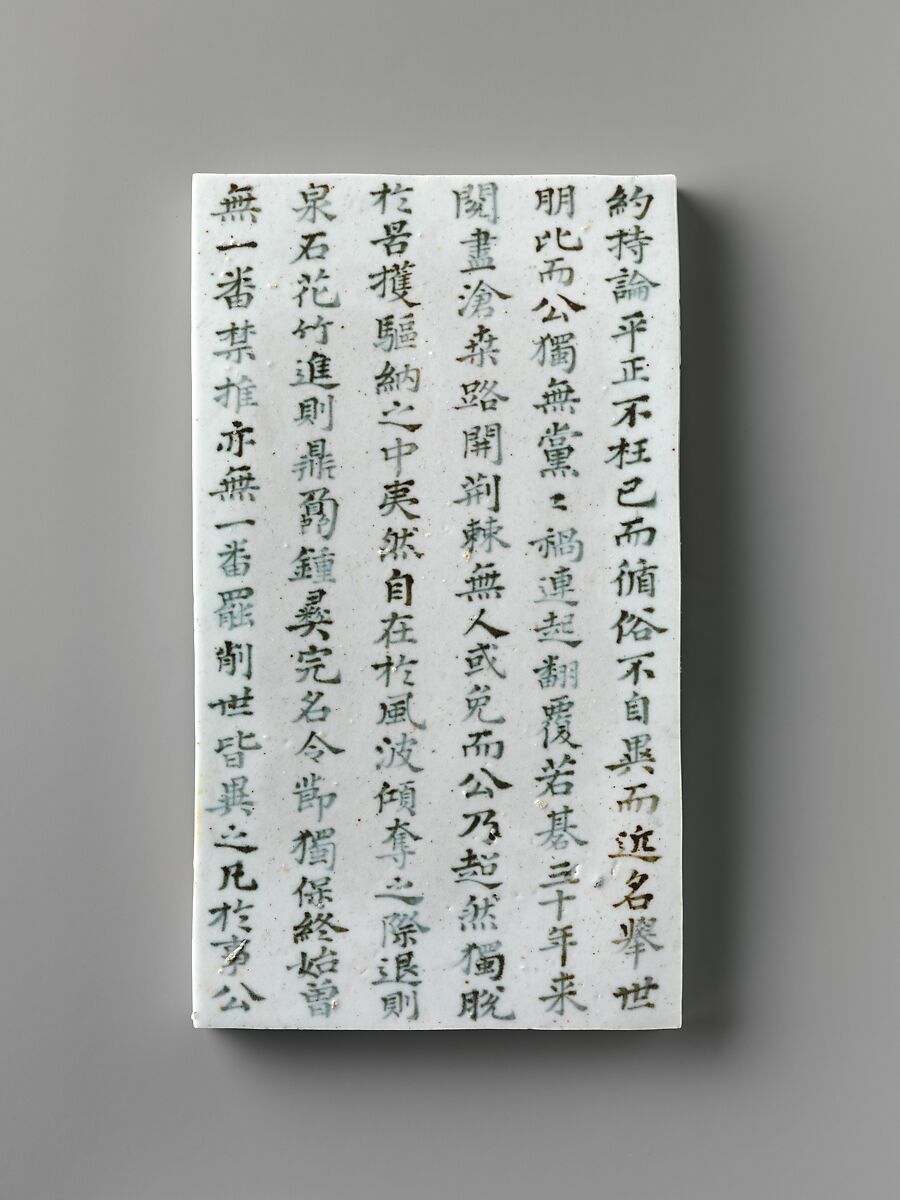 約持論平正不枉已而循俗不自異而近名擧世
朋比而公獨無黨〻禍連起翻覆若碁三十年来
閱盡滄桑路開荆棘無人或免而公乃超然獨脫
於罟擭驅納之中夷然自在於風波傾奪之際退則
泉石花竹進則鼎鼐鍾彛完名令節獨保終始曾
無一番禁推亦無一番罷削世皆異之凡於事公